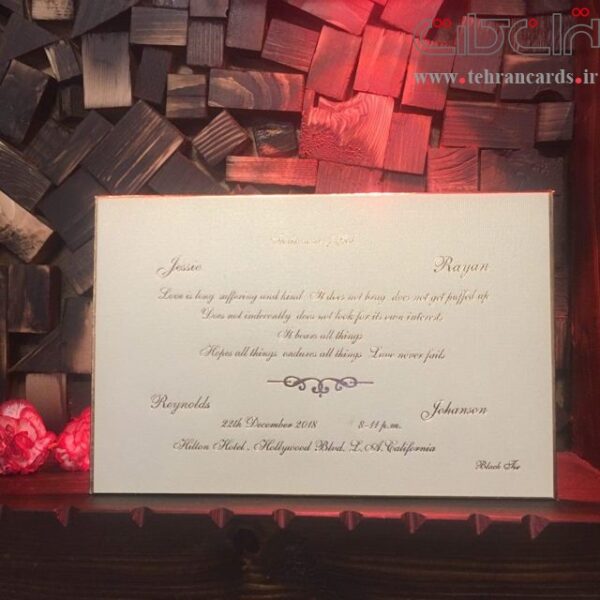 تهران کارت
www.tehrancards.ir
Jessie Rayan
Love is long suffering and kind It does not brag does not get puffed up
Does not indecently does not look for its own interests
It bears all things
Hopes all things endures all things Love never fails
Reynolds Johanson
22th December 2018 8-11 p.m.
Hilton Hotel, Hollywood Blvd, L.A,California
Black Tie